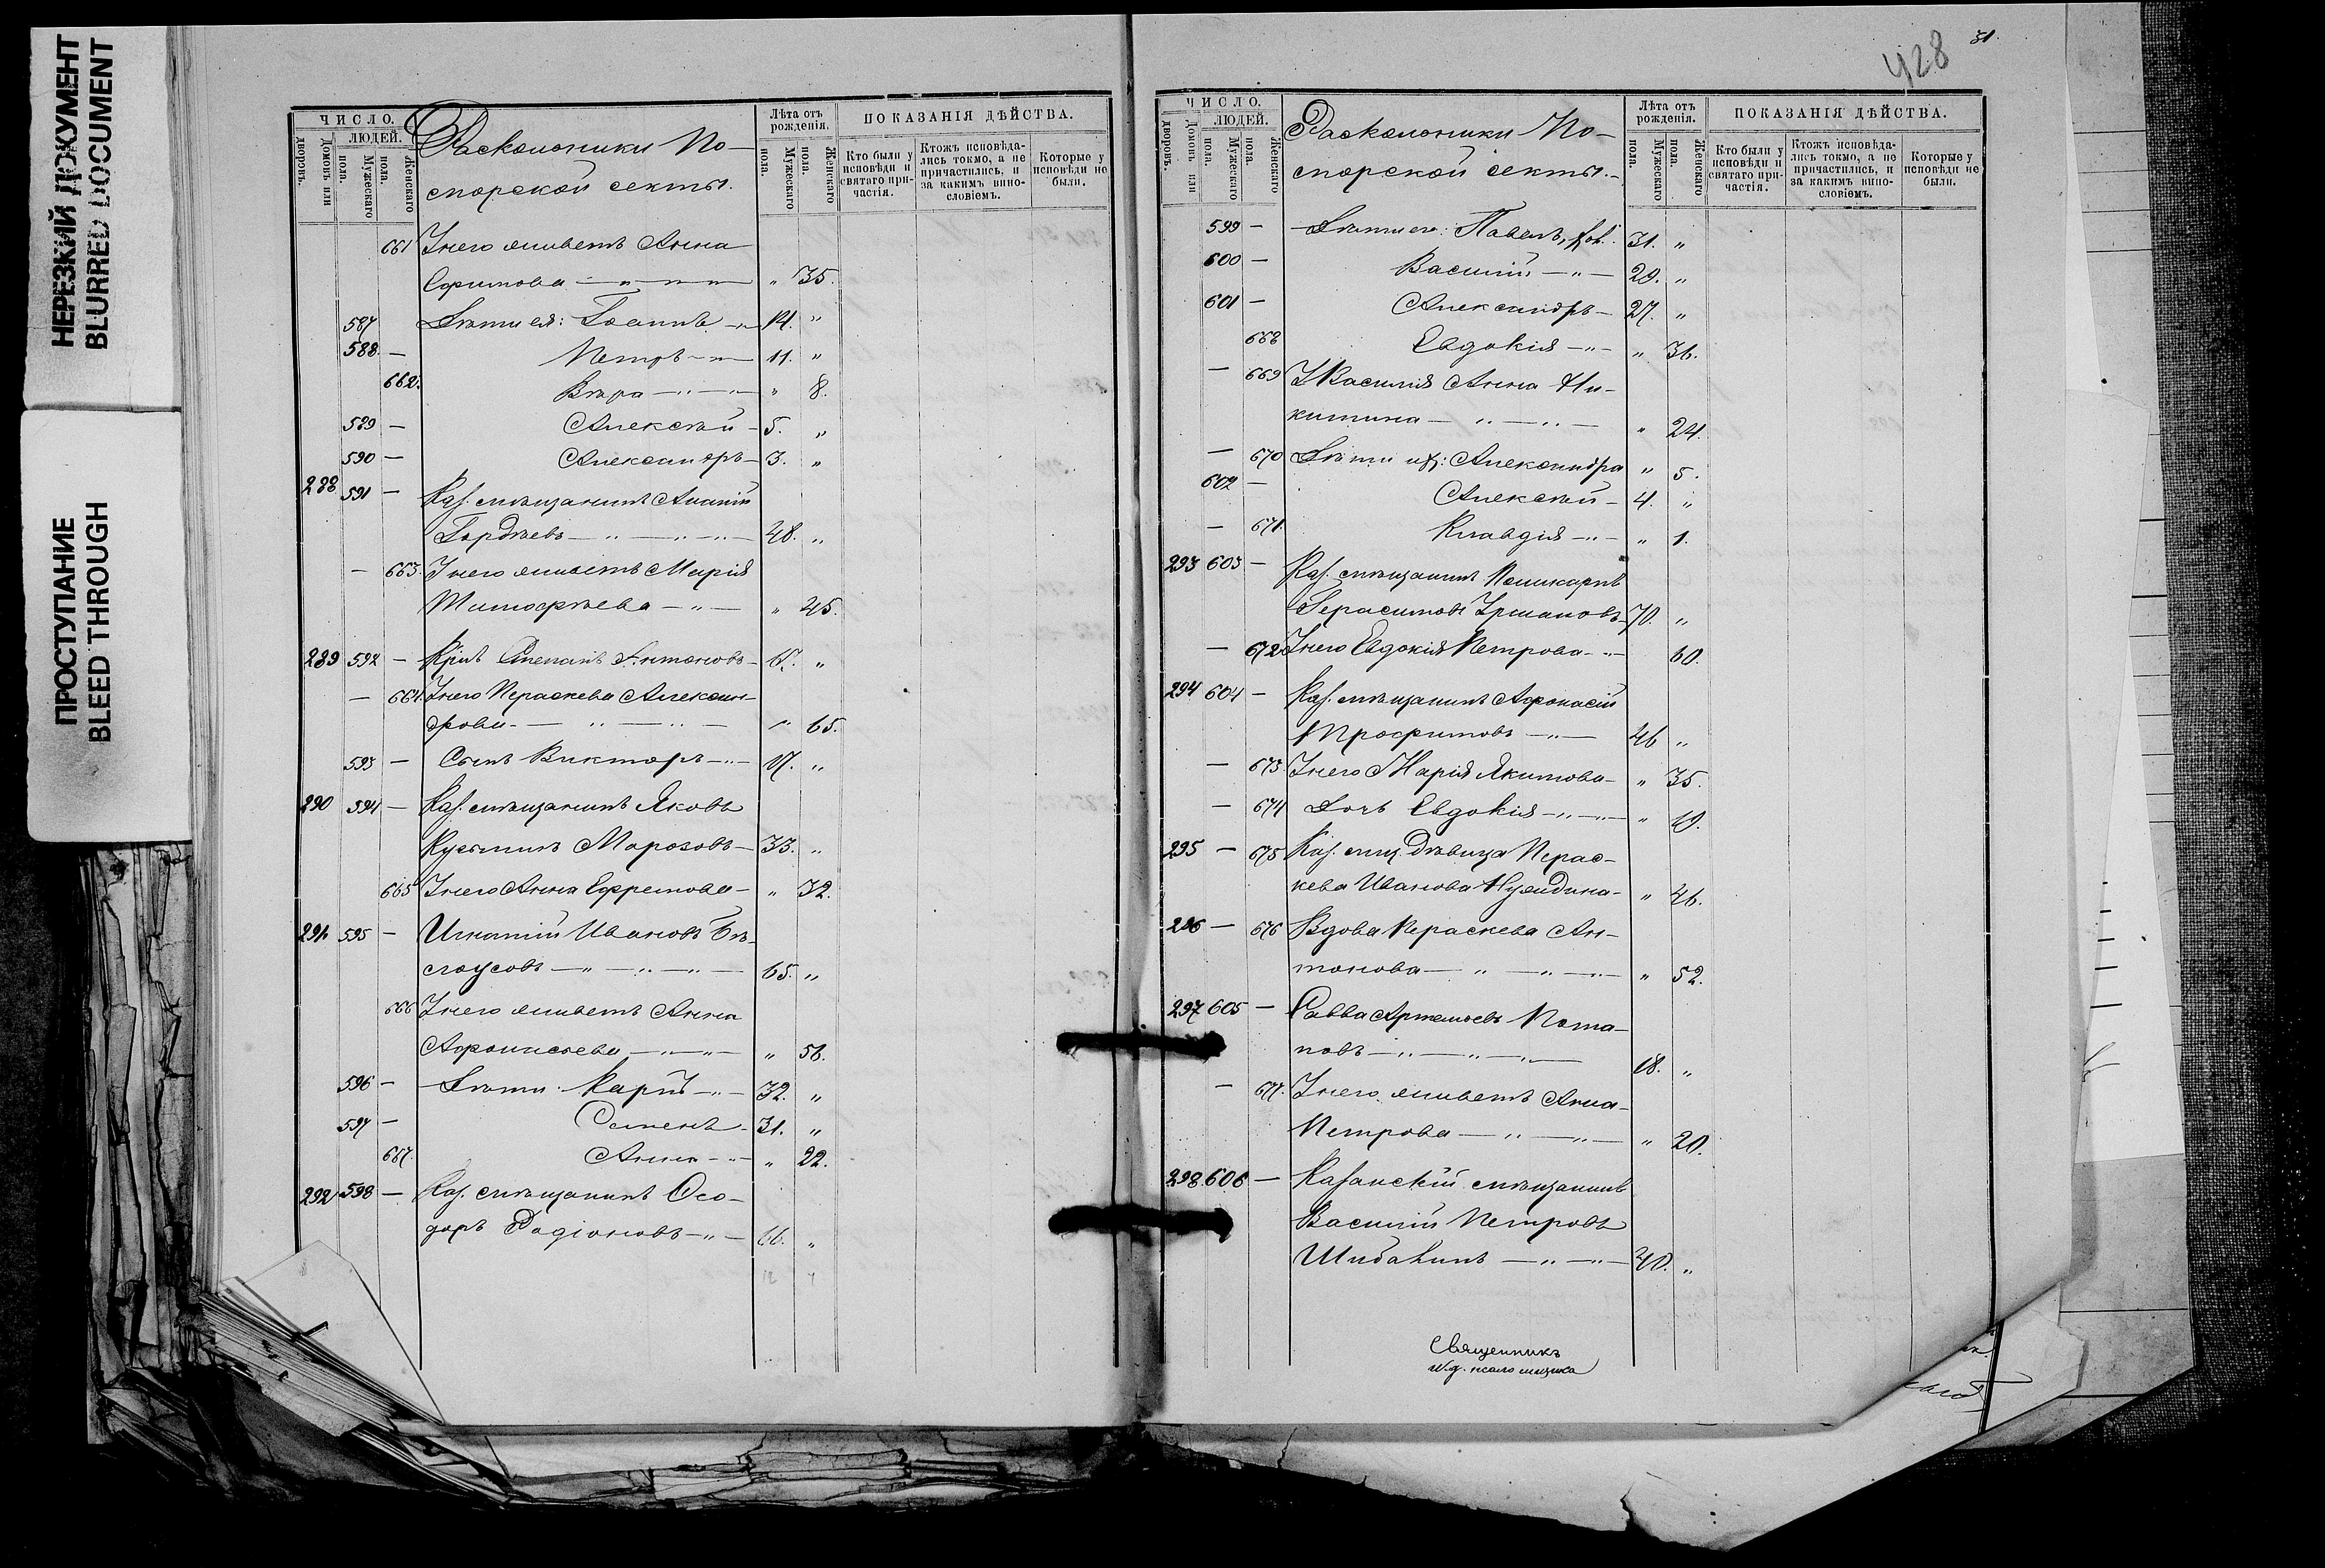 НЕРЕЗКИЙ ДОКУМЕНТ
BLURRED DOCUMENT
ПРОСТУПАНИЕ
BLEED THROUGH
ЧИСЛО.
ЛЮДЕЙ.
Домовъ или дворовъ.
Мужескаго пола.
Женскаго пола.
Раскольники По-
морской секты.
Лѣта отъ рожденія.
Мужескаго пола.
Женскаго пола.
ПОКАЗАНІЯ ДѢЙСТВА.
Кто были у исповѣди и святаго причастія.
Ктожъ исповѣдались токмо, а не причастились, и за какимъ винословіемъ.
Которые у исповѣди не были.
661 У него живетъ Анна
Ефимова — " — " — " 35.
587 Дѣти ея: Іоаннъ — 14. "
588 — Петръ — " — 11. "
662. Вѣра — " — " — " 8.
589 — Алексѣй — 5. "
590 — Александръ — 3. "
288 591 — Каз. мѣщанинъ Ананій
Гордѣевъ — " — " — " — 48. "
— 663. У него живетъ Марія
Тимофѣева — " — " 45.
289 592 — Крнъ Степанъ Антоновъ — 67. "
— 664. У него Параскева Алексан-
дрова — " — " — " 65.
593 — Сынъ Викторъ — " — 17. "
290 594 — Каз. мѣщанинъ Яковъ
Кузьминъ Морозовъ — 33. "
665 У него Анна Ефремова — " 32.
291 595 — Игнатій Ивановъ Бѣ-
лоусовъ — " — " — " — 65. "
666 У него живетъ Анна
Афонасьева — " — " — " 56.
596 — Дѣти: Карпъ — " — 32. "
597 — Семенъ — 31. "
667. Анна — " — " 22.
292 598 — Каз. мѣщанинъ Ѳео-
доръ Родіоновъ — " — 66. "
12 7
428
31.
ЧИСЛО.
ЛЮДЕЙ.
Домовъ или дворовъ.
Мужескаго пола.
Женскаго пола.
Раскольники По-
морской секты. —
Лѣта отъ рожденія.
Мужескаго пола.
Женскаго пола.
ПОКАЗАНІЯ ДѢЙСТВА.
Кто были у исповѣди и святаго причастія.
Ктожъ исповѣдались токмо, а не причастились, и за какимъ винословіемъ.
Которые у исповѣди не были.
599 — Дѣти его: Павелъ, 31. "
600 — Василій — " — 29. "
601 — Александръ — 27. "
668 Евдокія — " — " 36.
— 669 У Василія Анна Ни-
китина — " — " — " 24.
— 670 Дѣти ихъ: Александра " 5.
602 — Алексѣй — 4. "
— 671. Клавдія — " — " 1.
293 603 — Каз. мѣщанинъ Поликарпъ
Герасимовъ Урмановъ — 70. "
— 672 У него Евдокія Петрова — " — 60.
294 604 — Каз. мѣщанинъ Афонасій
Трофимовъ — " — 46 "
— 673. У него Марія Якимова — " 35.
— 674 Дочь Евдокія — " — " — " 10.
295 — 675 Каз. мщ. дѣвица Парас-
кева Иванова — " 46.
296 — 676 Вдова Параскева Ан-
тонова — " — " — " — " 52.
297 605 — Савва Артемьевъ Пота-
повъ — " — " — " — 18. "
— 677. У него живетъ Анна
Петрова — " — " — " 20.
298 606 — Казанскій мѣщанинъ
Василій Петровъ
Шибакинъ — " — " — 40. "
Священникъ
И.д. псаломщика